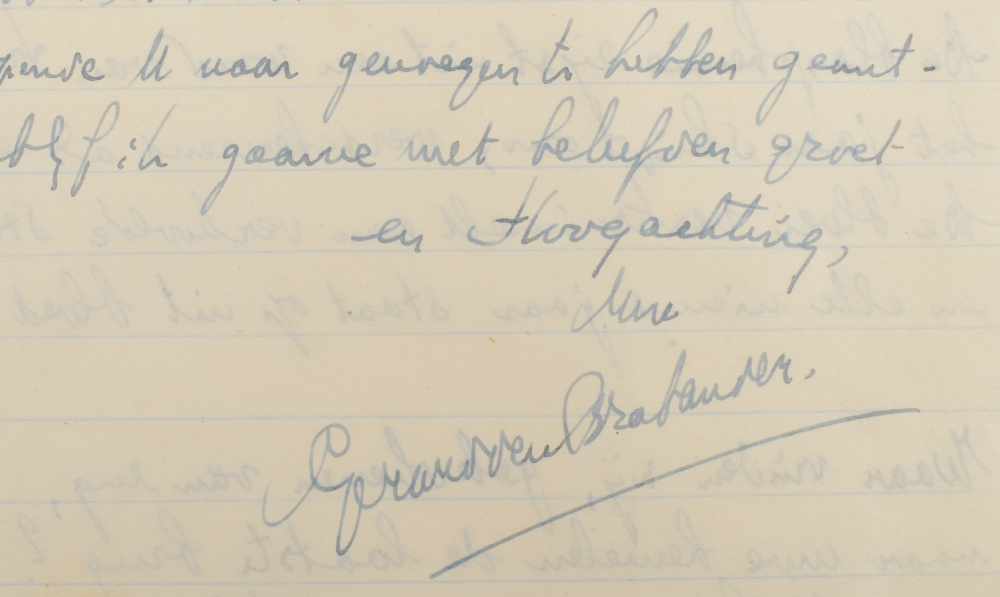 U naar genoegen te hebben geant-
blijf ik gaarne met beleefden groet
en Hoogachting,
Uwe
Gerard den Brabander.